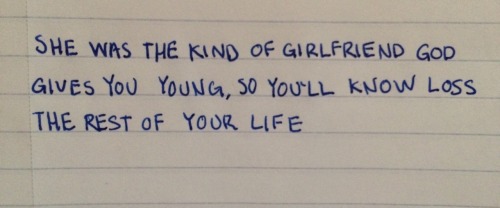 SHE WAS THE KIND OF GIRLFRIEND GOD
GIVES YOU YOUNG, SO YOU'LL KNOW LOSS
THE REST OF YOUR LIFE